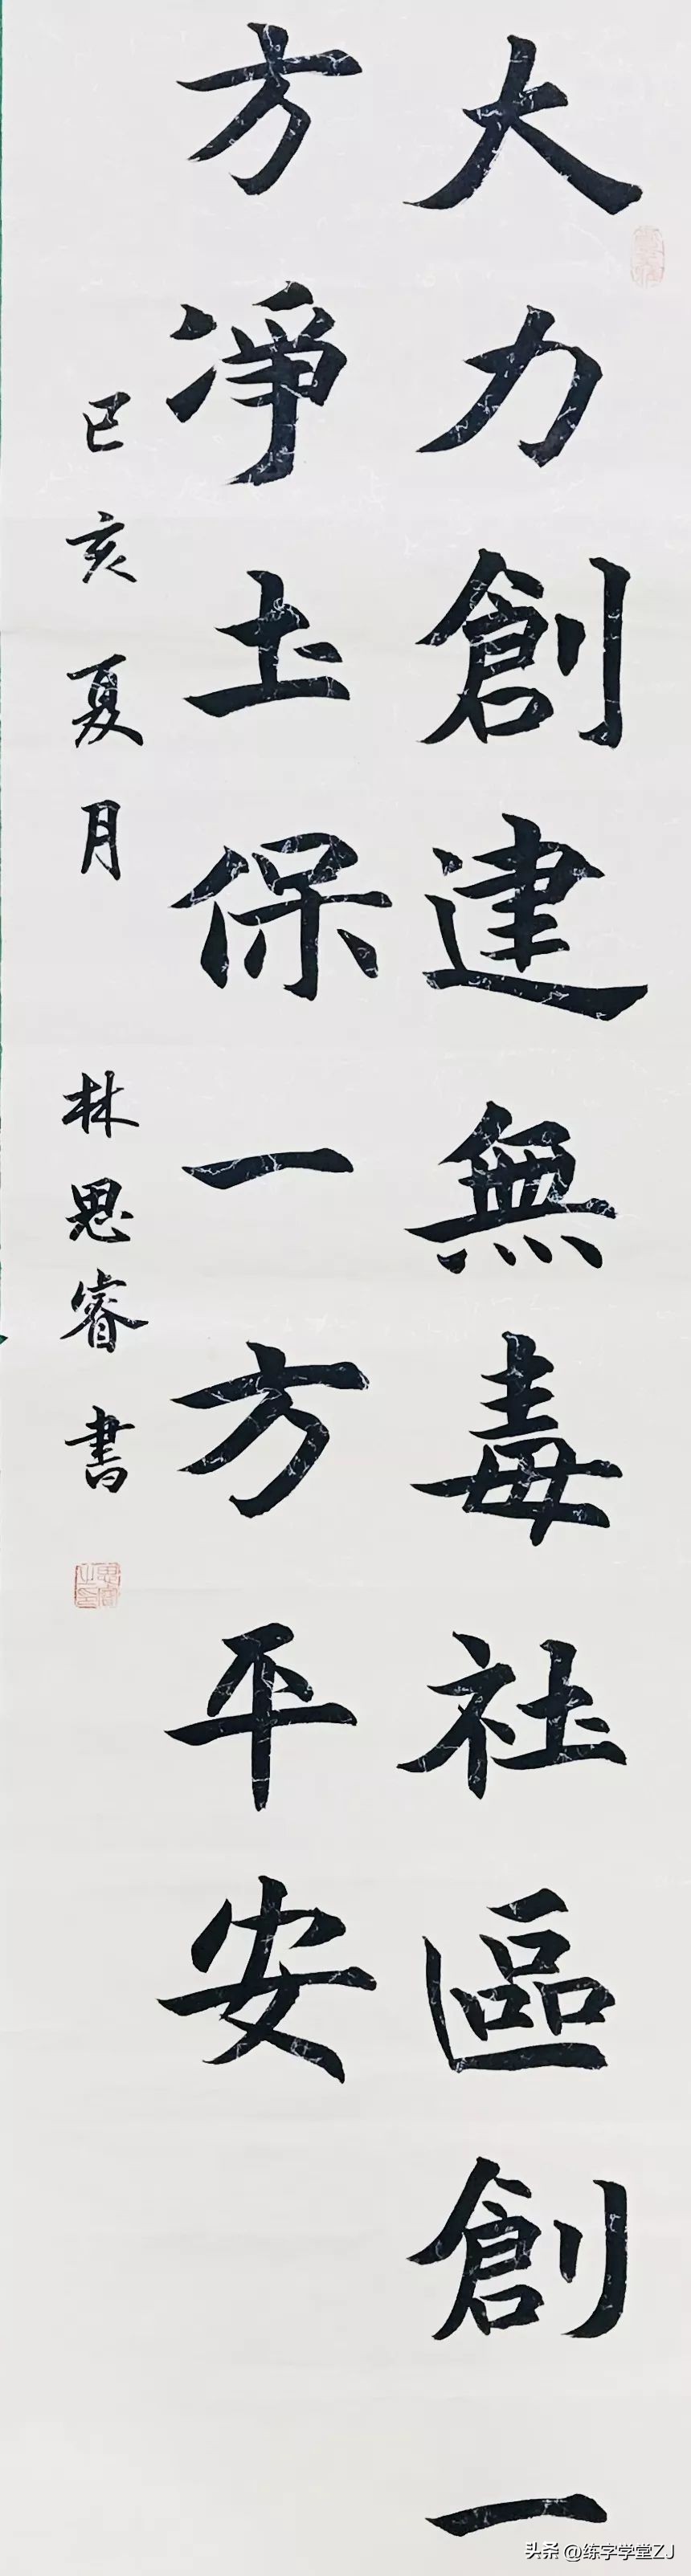 大力創建無毒社區創一
方凈土保一方平安
己亥夏月 林思睿書
思睿之印
头条 @练字学堂ZJ